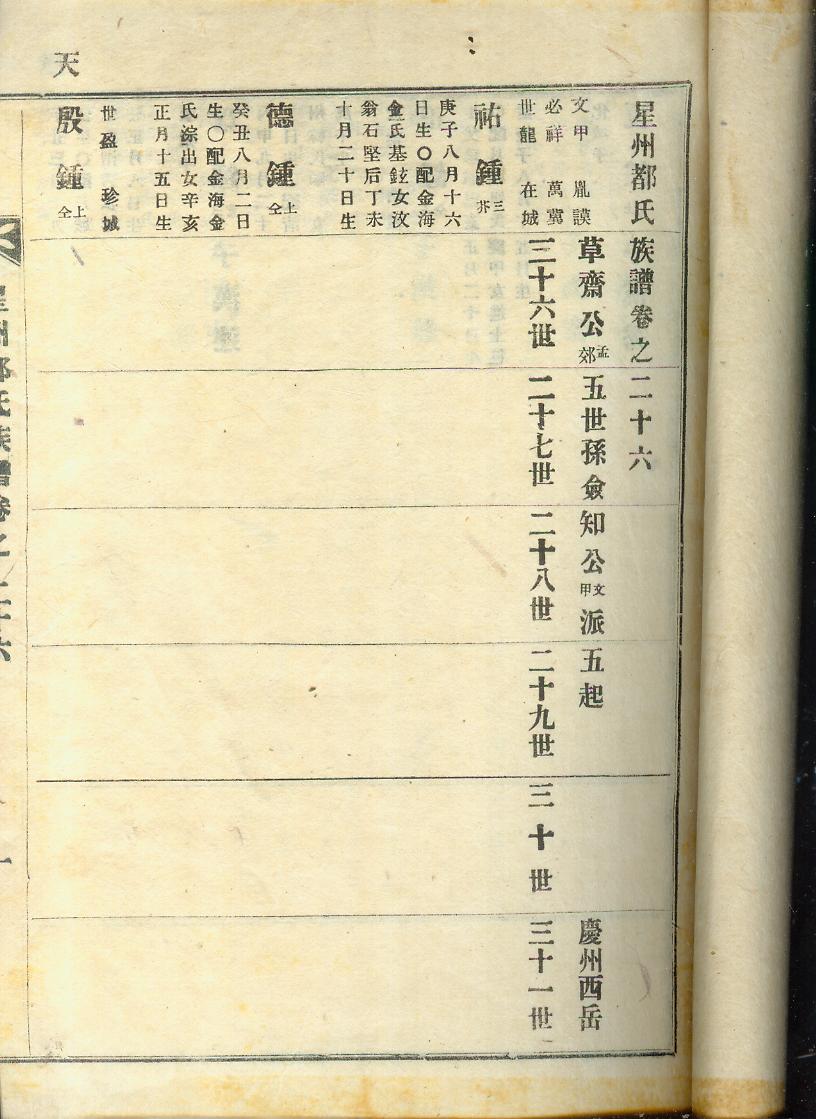 星州都氏族譜卷之二十六
文甲 胤謨
必祥 萬冀
世龍 在城
草齋公孟郊五世孫僉知公文甲派五起
慶州西岳
三十六世
二十七世
二十八世
二十九世
三十世
三十一世
祐鍾三芥
庚子八月十六
日生〇配金海
金氏基鉉女汶
翁石堅后丁未
十月二十日生
德鍾上仝
癸丑八月二日
生〇配金海金
氏淙出女辛亥
正月十五日生
世盈 珍城
殷鍾上仝
天
星州都氏族譜卷之二十六
一